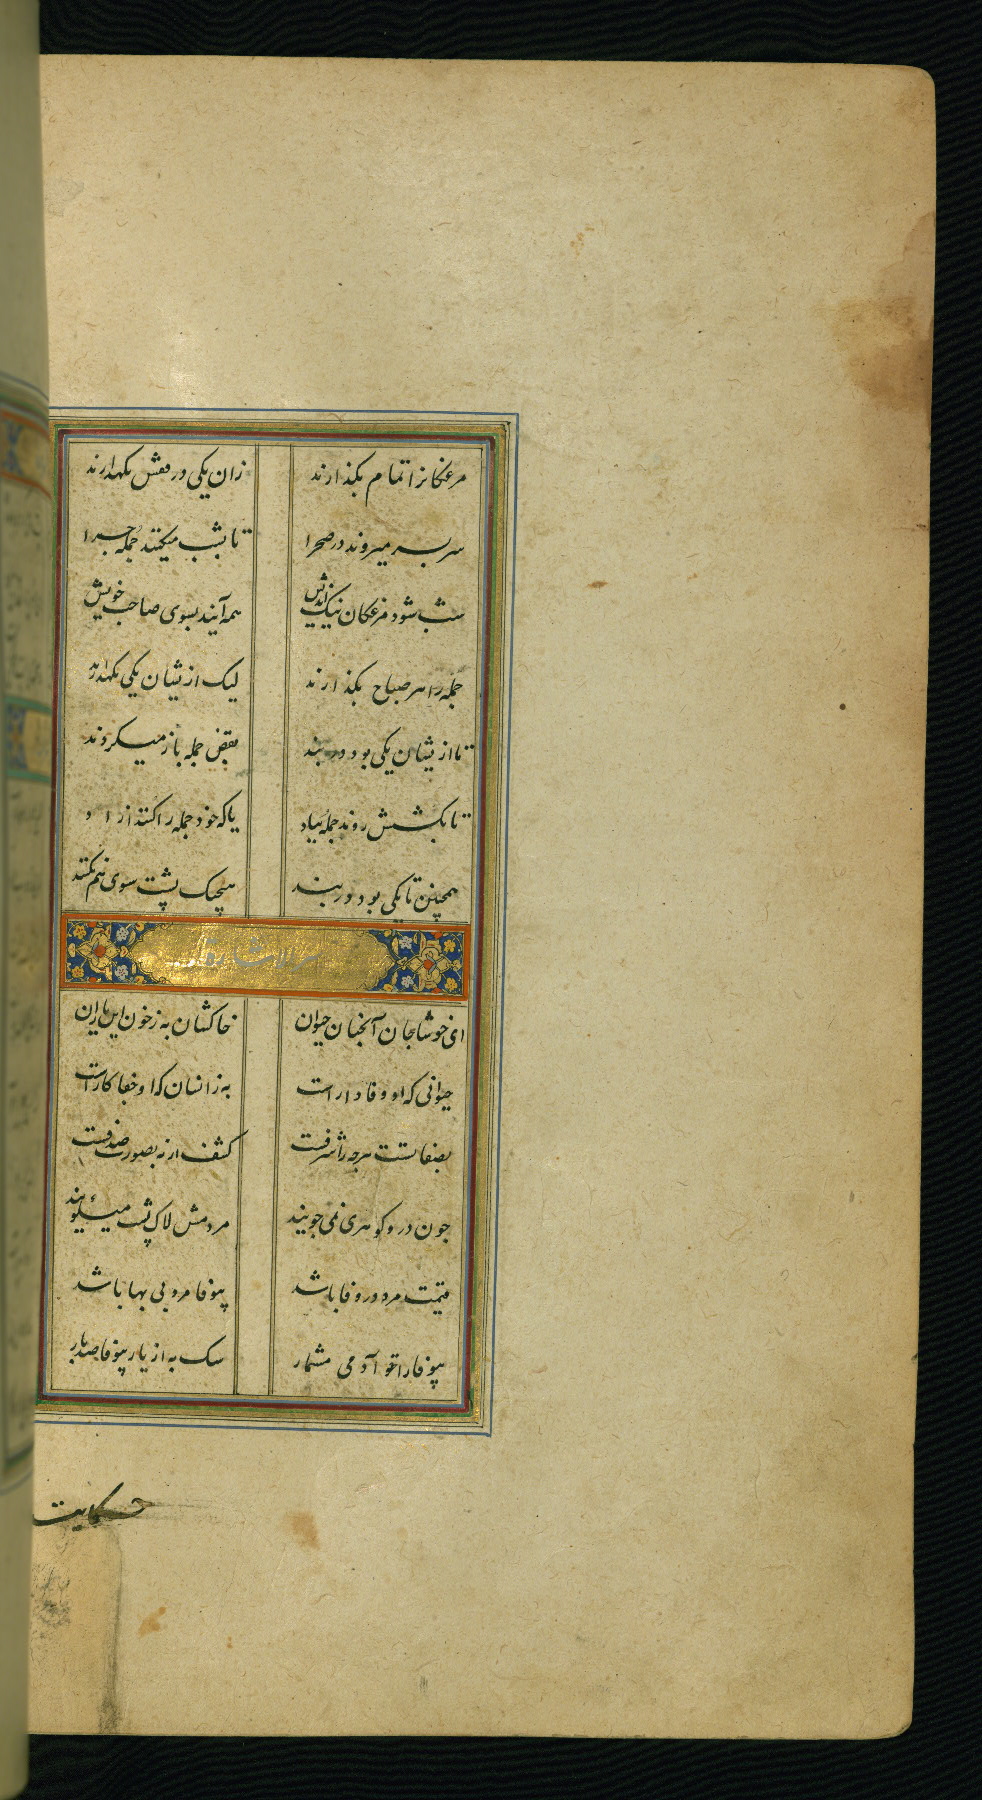 مرغکانرا تمام بگذارند زان یکی در قفس نگهدارند
سر بسر میروند در صحرا تا بشب میکنند جمله چرا
شب شود مرغکان نیک اندیش همه آیند بسوی صاحب خویش
جمله را هر صباح بگذارند لیک از یشان یکی نگهدارند
تا از یشان یکی بود در بند بقفس جمله باز میکردند
تا بکشتش روند جمله بیاد یا که خود جمله را کنند از او
همچنین تا یکی بود در بند هیچیک پشت سوی هم نکنند
ای خوشا جان آنچنان حیوان خاکشان به زخون این یاران
حیوانی که او وفادار است به زانسان که او جفا کار است
بصفاتست هرچه را شرفست کشف ار نه بصورت صدفست
چون درو گوهری نمی جویند مردمش لاک پشت میگویند
قیمت مرد در وفا باشد بیوفا مرد بی بها باشد
بیوفا را تو آدمی مشمار سک به از یار بیوفا صد بار
حکایت